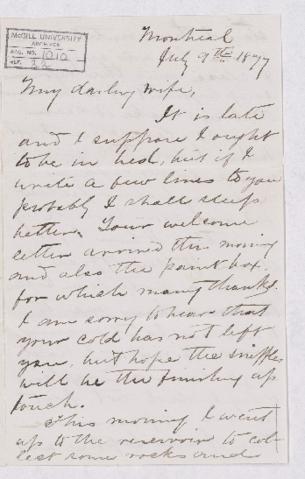 McGILL UNIVERSITY
ARCHIVES
ACC. NO. 1010
REF. 22
Montreal
July 9th 1877
My darling wife,
It is late
and I suppose I ought
to be in bed, but if I
write a few lines to you
probably I shall sleep
better. Your welcome
letter arrived this morning
and also the paint box.
for which many thanks.
I am sorry to hear that
your cold has not left
you, but hope the sniffles
will be the finishing up
touch.
This morning I went
up to the reservoir to col-
lect some rocks and